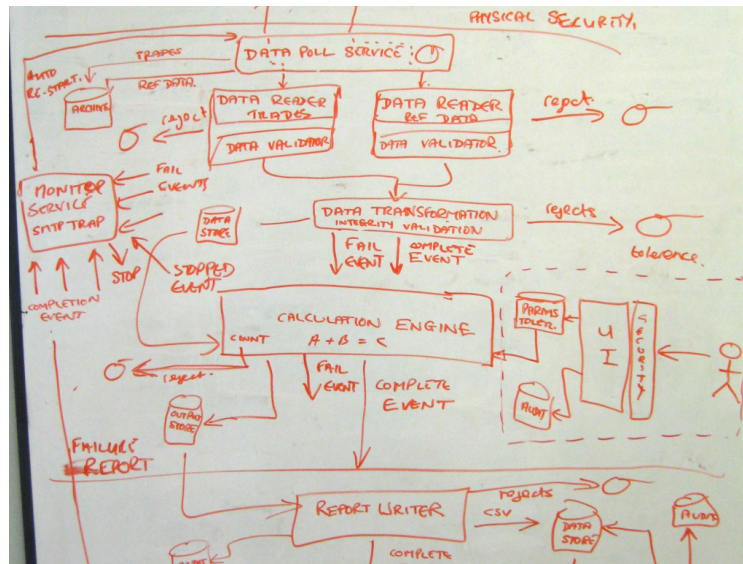 PHYSICAL SECURITY.
DATA POLL SERVICE
TRADES
AUTO
RE-START.
REF DATA.
ARCHIVE
DATA READER
TRADES
DATA VALIDATOR
reject
DATA READER
REF DATA
DATA VALIDATOR
reject.
MONITOR
SERVICE
SMTP TRAP
FAIL
EVENTS
DATA
STORE
DATA TRANSFORMATION
INTEGRITY VALIDATION
rejects
tolerence.
FAIL
EVENT
COMPLETE
EVENT
STOP
STOPPED
EVENT
COMPLETION
EVENT
CALCULATION ENGINE
A + B = C
COUNT
reject.
PARAMS
TOLER.
UI
SECURITY
AUDIT
FAIL
EVENT
COMPLETE
EVENT
OUTPUT
STORE
FAILURE
REPORT
REPORT WRITER
rejects
CSV
DATA
STORE
AUDIT
COMPLETE